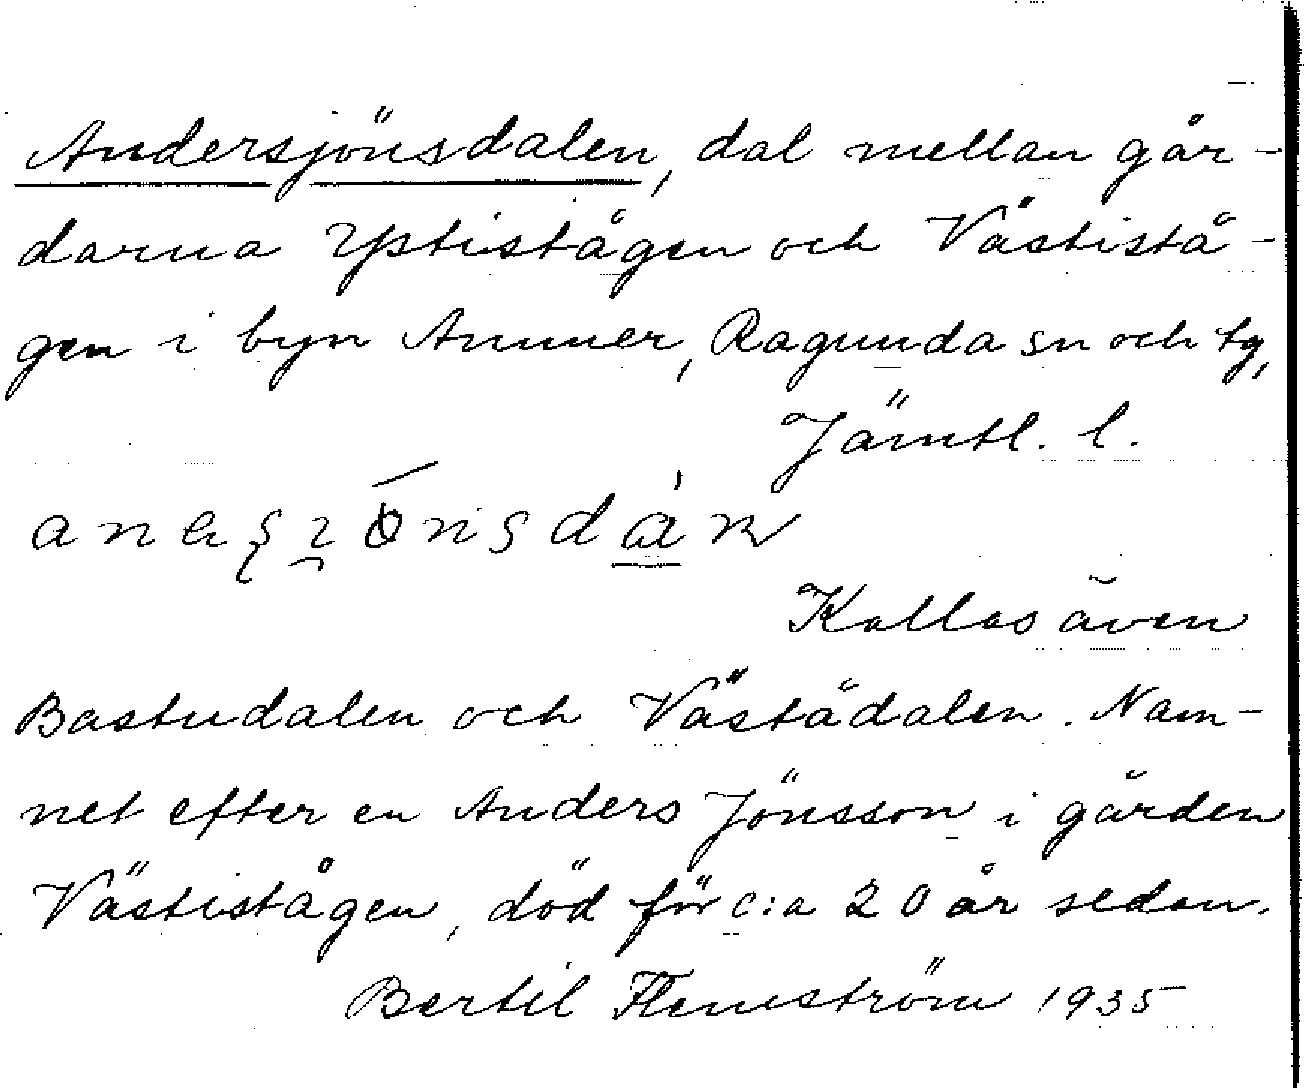 Andersjönsdalen, dal mellan går-
darna Ystistågen och Västistå-
gen i byn Ammer, Ragunda sn och tg,
Jämtl. l.
Kallas även
Bastudalen och Västådalen. Nam-
net efter en Anders Jönsson i gården
Västistågen, död för c:a 20 år sedan.
Bertil Flemström 1935